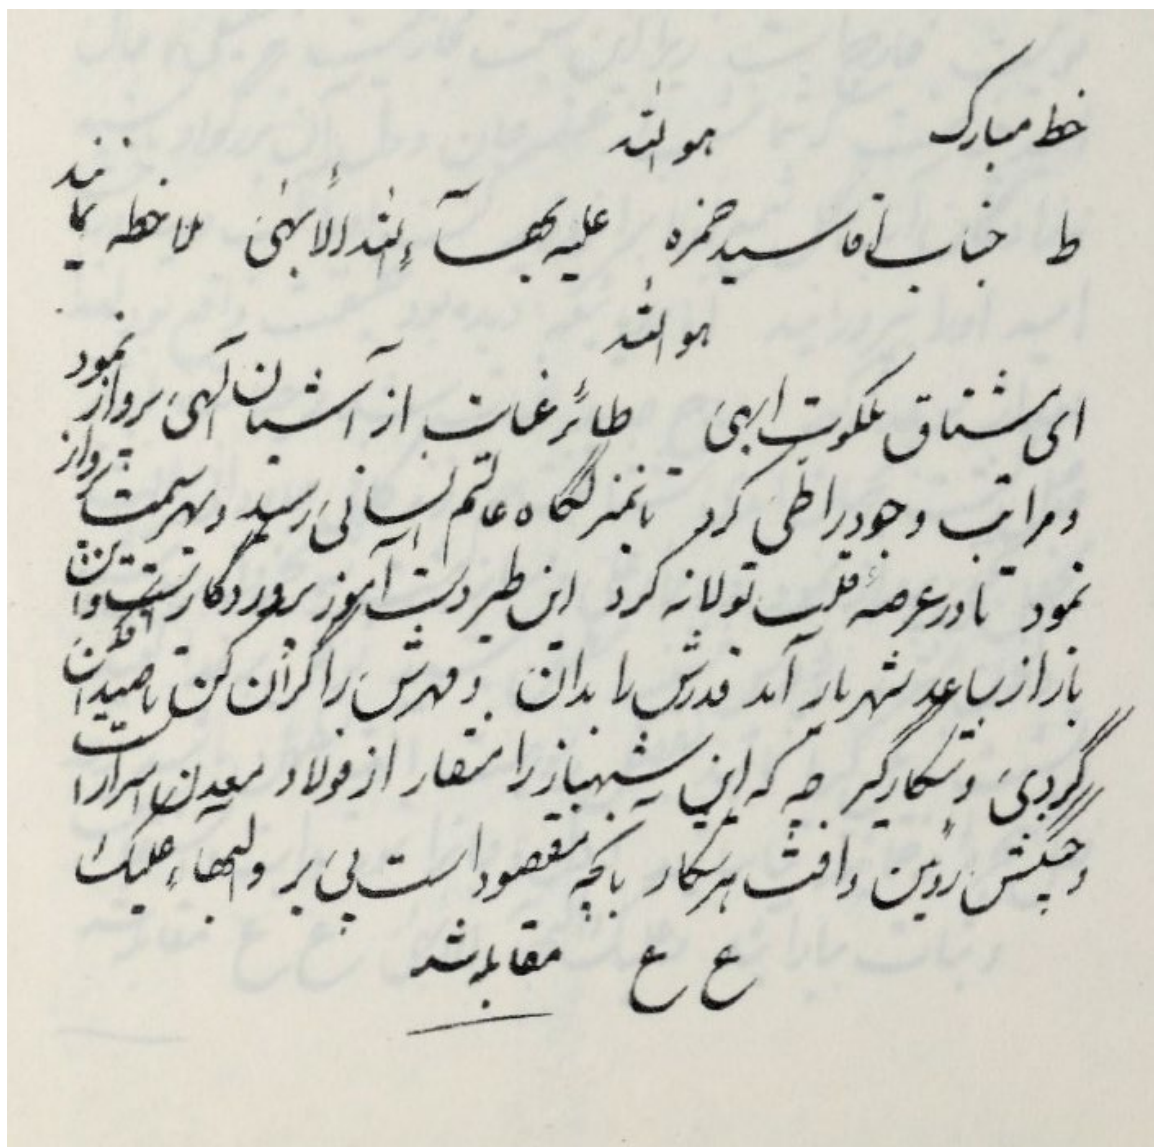 خط مبارک هو الله
ط جناب آقا سید حمزه علیه بهآء الله الأبهی ملاحظه نمایند
هو الله
ای مشتاق ملکوت ابهی طائر عنایت از آشیان الهی پرواز نمود
و مراتب وجود را طی کرد تا بمنزلگاه عالم انسانی رسید و بهر سمت پرواز
نمود تا در عرصه قلب تو لانه کرد این طیر دست آموز پروردگارست و این
باز از ساعد شهریار آمد قدرش را بدان و مهرش را گران کن تا صید افکن
گردی و شکار گیر چه که این شهباز را منقار از فولاد معدن اسرار است
و چنگش روئین و آفت هر شکار بآنچه مقصود است پی بر و البهاء علیک
ع ع مقابله شد